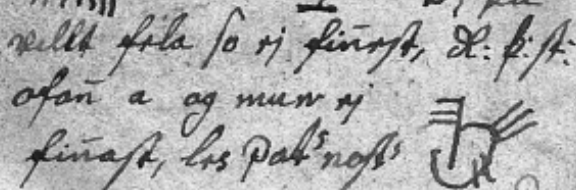 villt fela so ej finest, d: þ: st:
ofan a og mun ej
finast, les Patrs nostrs